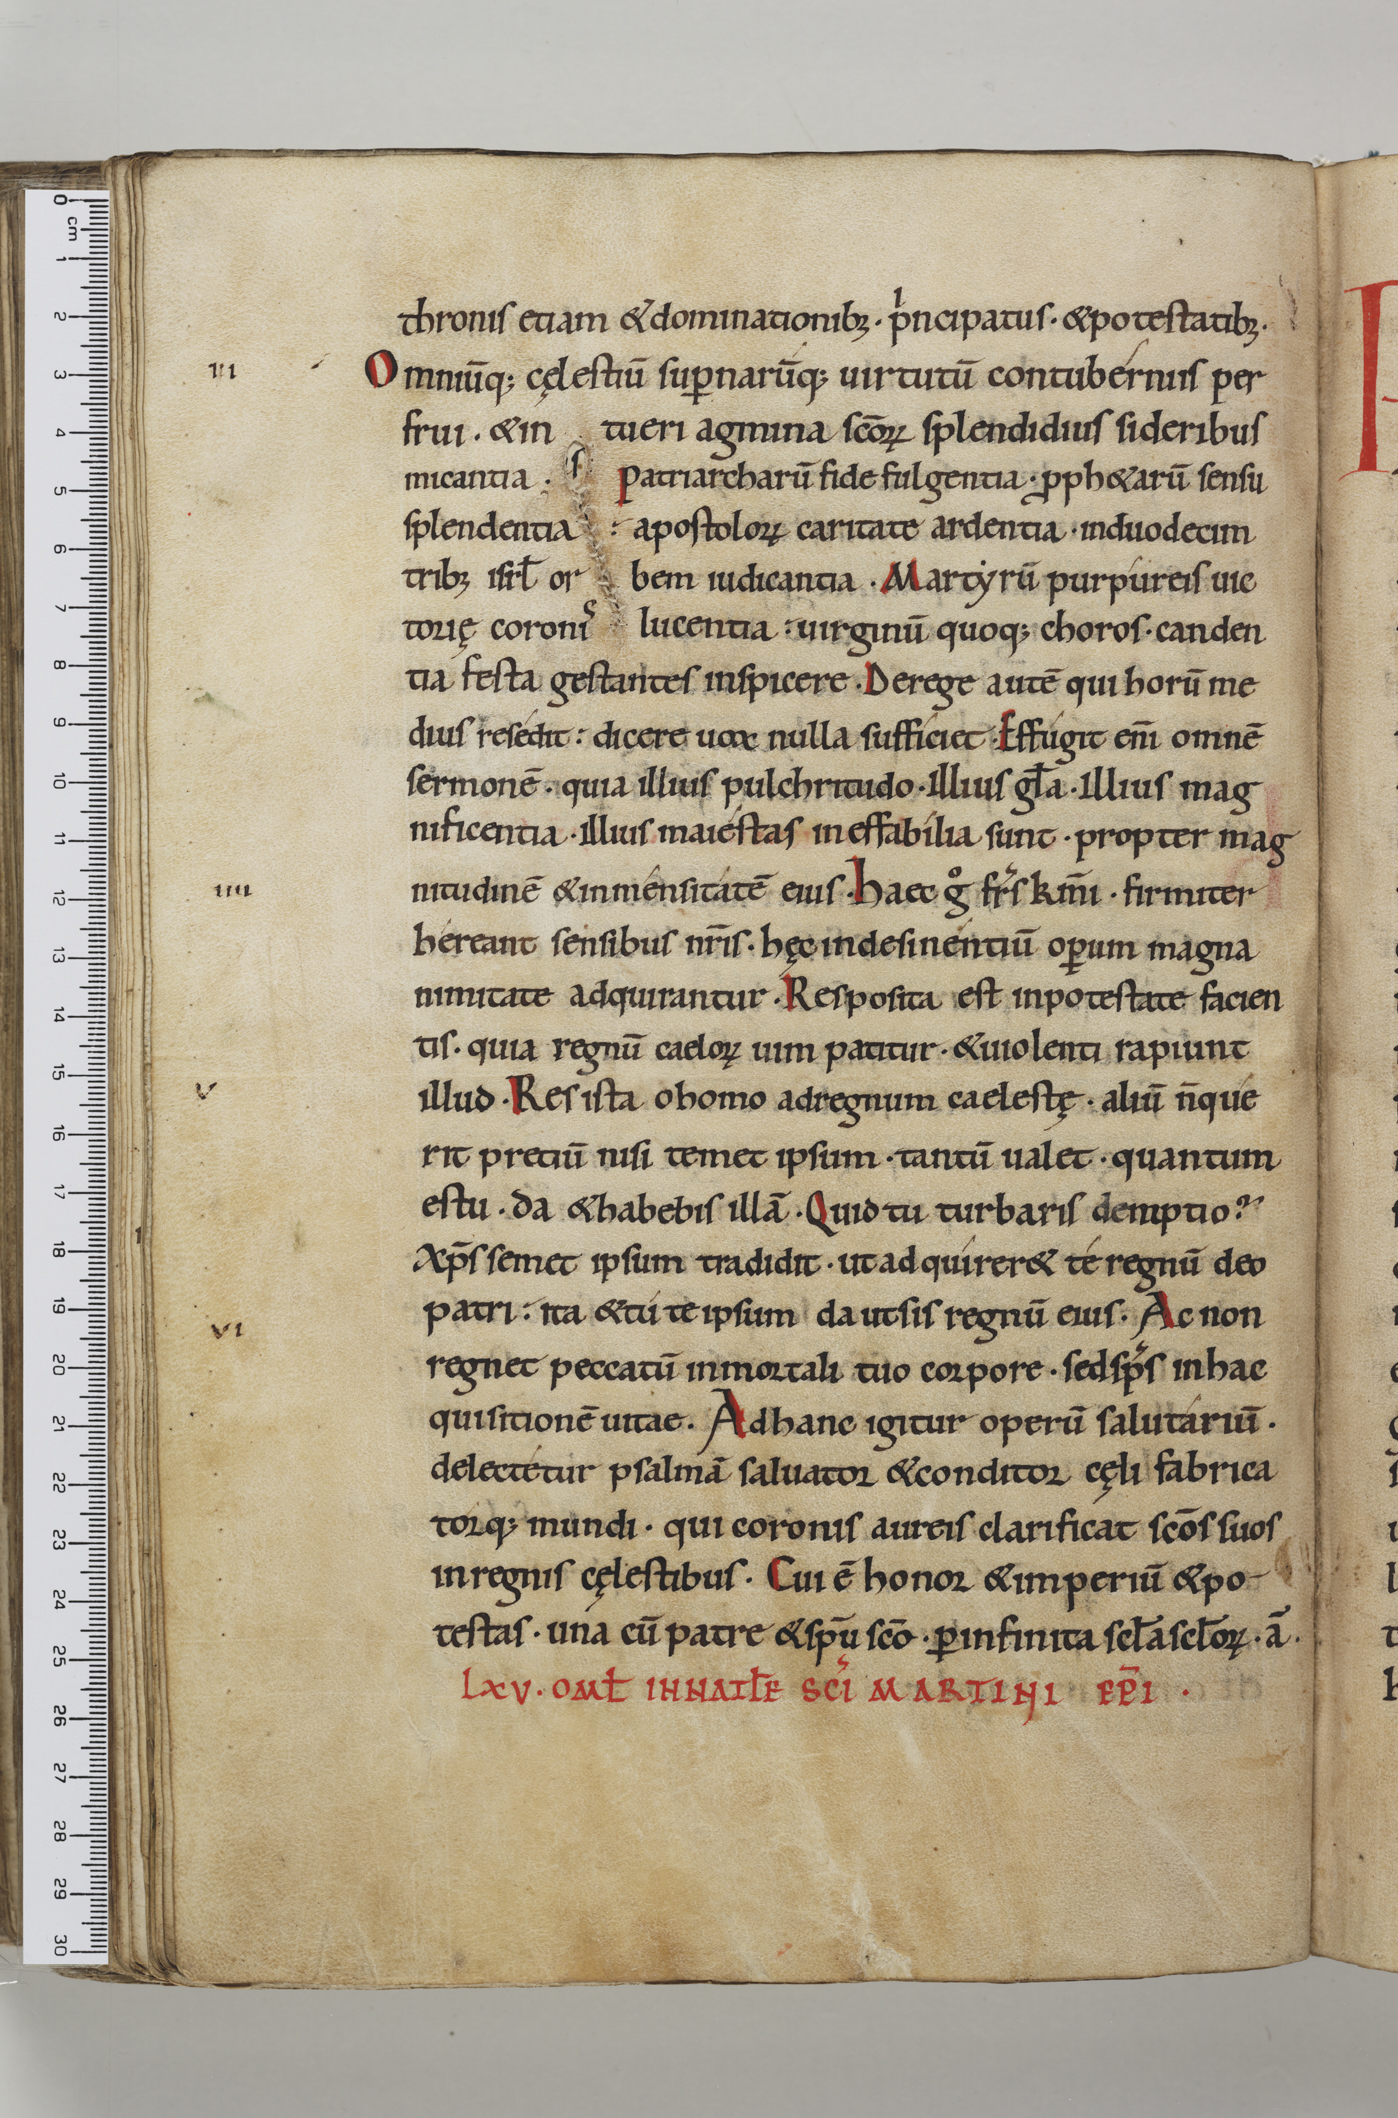 thronis etiam & dominationibꝫ · pͥncipatus · & potestatibꝫ ·
iii Omniūq; cęlestiū suꝑnarūq; uirtutū contubérniis per
frui · & in tueri agmina scōꝝ splendidius sideribus
micantia · Patriarcharū fide fulgentia · ꝓph&arū sensu
splendentia : apostoloꝝ caritate ardentia · induodecim
tribꝫ isrł or bem iudicantia · Martẏrū purpúreis uic
torię coronis lucentia : uirginū quoq; choros · canden
tia festa gestantes inspicere · De rege autē qui horū me
dius resédit : dicere uox nulla sufficiet · Effúgit eni̅ omnē
sermonē · quia illius pulchritudo · illius gła · illius mag
nificentia · illius maiéstas ineffabília sunt · propter mag
iiii nitudinē & inmēnsitátē eius · Haec gͦ fr̄s km̄i · firmiter
héreant sensibus nr̄is · hęc indesinéntiū oꝑum magna
nimitate adquirantur · Resposita est inpotestate facien
tis · quia regnū caeloꝝ uim patitur · & uiolenti rapiunt
v illud · Res ista o homo adregnum caelestę · aliū n̄ quę
rit pretiū nisi temet ipsum · tantū ualet · quantum
estu · da & habebis illā · Quid tu turbaris demptio?
xp̄s semet ipsum tradidit · ut adquírer& té regnū deo
vi patri : ita & tú te ipsum da ut sis regnū eius · Ac non
regnet peccatū inmortali tuo corpore · sed sp̄s inhac
quisitionē uitae · Ad hanc igitur operū salutáriū ·
delectétur psalmā saluator & conditor cęli fabrica
torq; mundi · qui coronis aureis clarificat scōs suos
in regnis cęlestibus · Cui ē honor & imperiū & po-
testas · una cū patre & sp̄u scō · ꝑ infinita scłascłoꝝ · ā ·
LXV · OMŁ IN NATŁE SC̄I MARTINI EP̄I ·